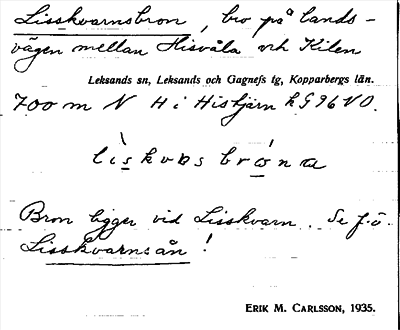 Lisskvarnsbron, bro på lands-
vägen mellan Hisvåla och Kilen
Leksands sn, Leksands och Gagnefs tg, Kopparbergs län.
700 m N H i Histjärn k G 96 V O.
Bron ligger vid Lisskvarn. Se f.ö.
Lisskvarnsån!
ERIK M. CARLSSON, 1935.